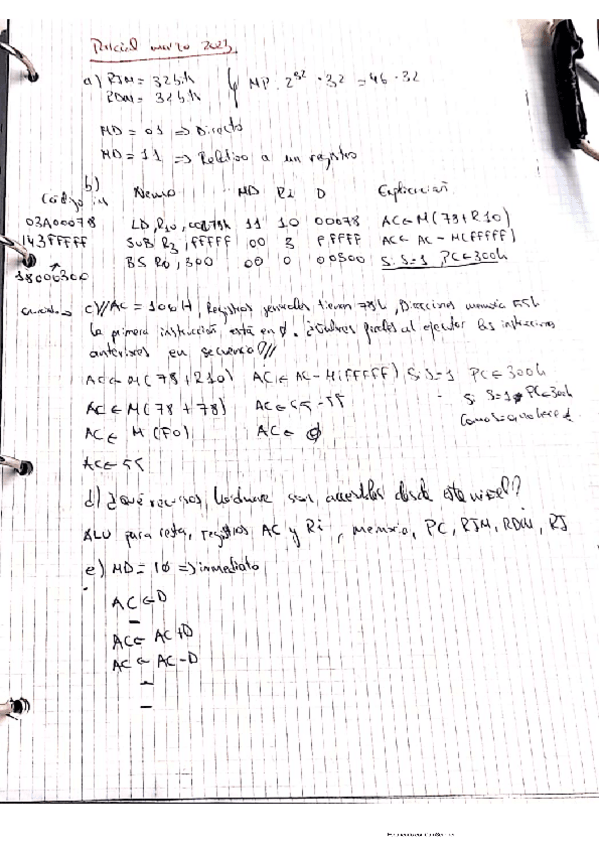 Parcial marzo 2023
a) RIM = 32 bits MP. 2^32 · 32 = 4G · 32
RDM = 32 bits
MD = 01 => Directo
MD = 11 => Relativo a un registro
b)
Código Nemo MD Ri D Explicación
03A00078 LD, R10, 11 10 00078 AC←M(78+R10)
143FFFFF SUB R3, FFFFF 00 3 FFFFF AC← AC - M(FFFFF)
BS R0, 300 00 0 00300 Si S=1 PC←300h
18000300
c)// AC = 100H, Registros generales tienen 78h, Direcciones memoria 55h
la primera instrucción está en ∅. al ejecutar las instrucciones
anteriores en secuencia?//
AC←M(78+R10) AC← AC-M(FFFFF) Si S=1 PC←300h
AC←M(78+78) AC←55-55 Si S=1 PC←300h
AC← M(F0) AC← ∅ Como S=
AC←55
d) ¿Qué recursos hardware son accesibles desde este nivel?
ALU para resta, registros AC y Ri, memoria, PC, RIM, RDM, RI
e) MD = 10 => inmediato
AC←D
AC← AC+D
AC ← AC-D